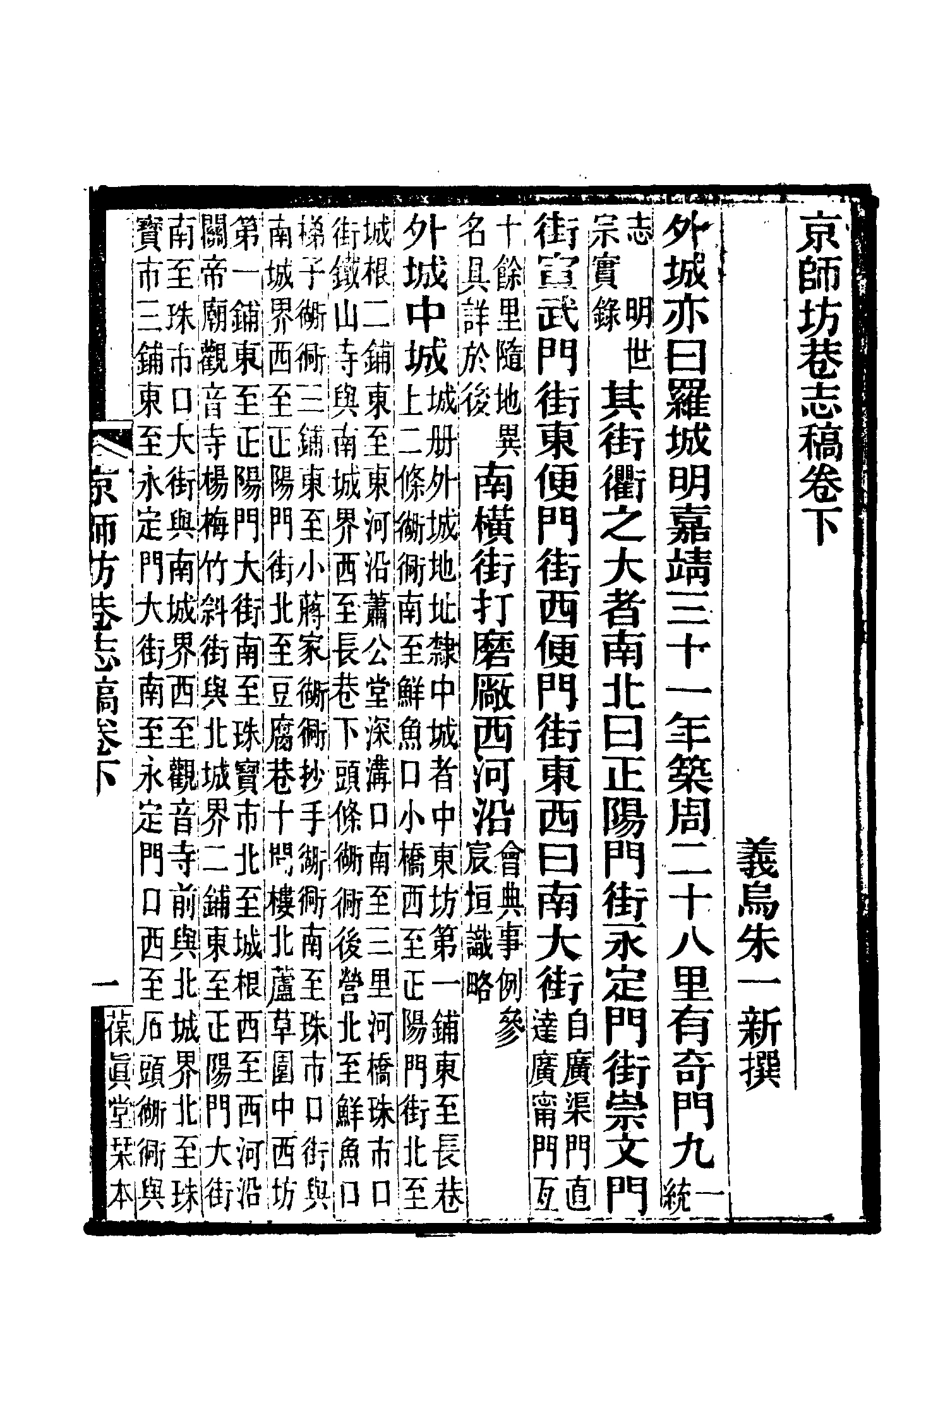 京師坊巷志稿卷下
義烏朱一新撰
外城亦曰羅城明嘉靖三十一年築周二十八里有奇門九一統
志　明世宗實錄其街衢之大者南北曰正陽門街永定門街崇文門
街宣武門街東便門街西便門街東西曰南大街自廣渠門直達廣甯門亙
十餘里隨地異名具詳於後南橫街打磨厰西河沿會典事例參宸垣識略
外城中城城册外城地址隸中城者中東坊第一鋪東至長巷
上二條衚衕南至鮮魚口小橋西至正陽門街北至
城根二鋪東至東河沿蕭公堂深溝口南至三里河橋珠市口
街鐵山寺與南城界西至長巷下頭條衚衕後營北至鮮魚口
梯子衚衕三鋪東至小蔣家衚衕抄手衚衕南至珠市口街與
南城界西至正陽門街北至豆腐巷十間樓北蘆草園中西坊
第一鋪東至正陽門大街南至珠寶市北至城根西至西河沿
關帝廟觀音寺楊梅竹斜街與北城界二鋪東至正陽門大街
南至珠市口大街與南城界西至觀音寺前與北城界北至珠
寶市三鋪東至永定門大街南至永定門口西至石頭衚衕與
京師坊巷志稿卷下
一
葆眞堂栞本